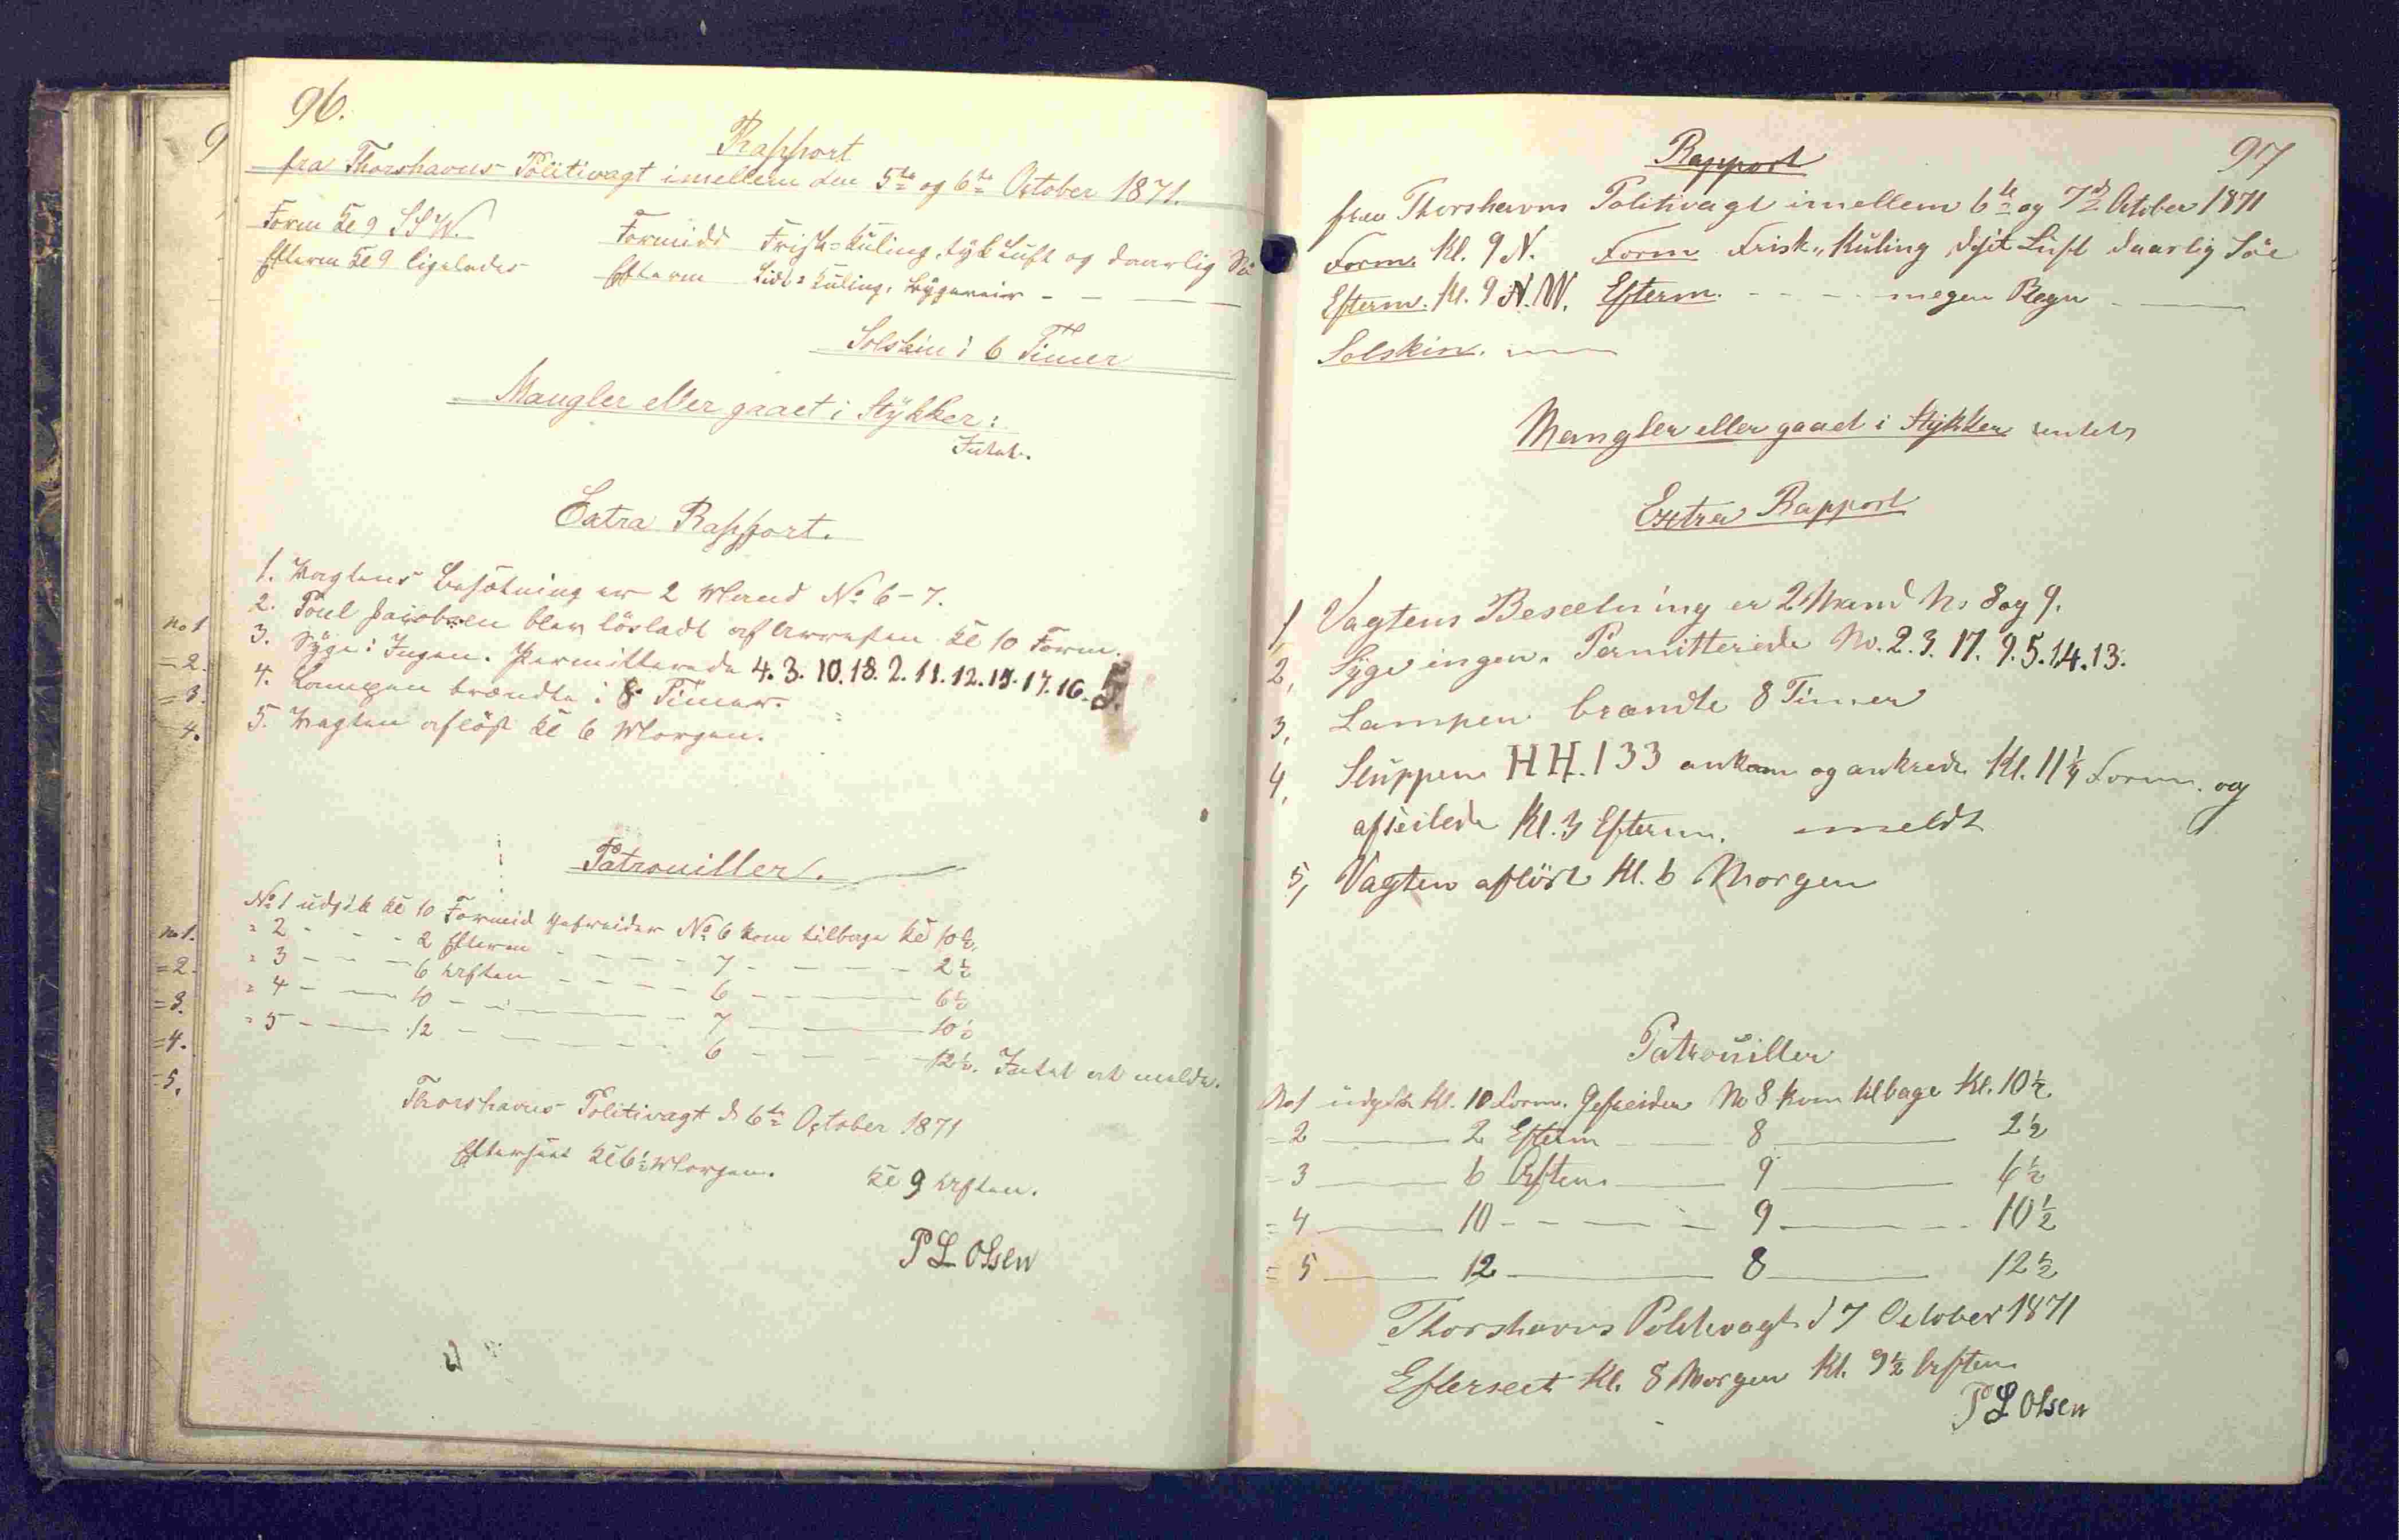 96.
Rapport
fra Thorshavns Politivagt imellem den 5te og 6te October 1871.
Form Kl 9 SSW. Formidd Frisk=Kuling, tyk Luft og daarlig Sö
Efterm Kl 9 ligeledes Efterm Lidt=Kuling, Bygeveir - - —
Solskin i 6 Timer
Mangler eller gaaet i Stykker:
Intet.
Extra Rapport.
1. Vagtens Besætning er 2 Mand No 6-7.
2. Poul Jacobsen blev lösladt af Arresten Kl 10 Form.
3. Syge: Ingen. Permitterede 4. 3. 10. 18. 2. 11. 12. 15. 17. 16. 5.
4. Lampen brændte i 8 Timer.
5. Vagten aflöst Kl 6 Morgen.
Patrouiller.
No 1 udgik Kl 10 Formid Gefreider No 6 kom tilbage Kl 10½.
= 2 - - - 2 Efterm - - - - 7 - - - - 2½
= 3 - - - 6 Aften - - - - 6 - - - - 6½
= 4 - - - 10 - - - - 7 - - - - 10½
= 5 - - - 12 - - - - 6 - - - - 12½. Intet at melde.
Thorshavns Politivagt d 6te October 1871
Efterseet Kl 6½ Morgen. Kl 9 Aften.
P L Olsen
no 1
= 2.
= 3.
4.
no 1.
= 2.
= 3.
= 4.
5.
97
Rapport
fra Thorshavns Politivagt imellem 6te og 7d October 1871
Form. Kl. 9 N. Form Frisk,, Kuling, Luft daarlig Söe
Efterm. Kl. 9 N.W. Efterm. - - - - megen Regn - —
Solskin. —
Mangler eller gaaet i Stykker intet
Extra Rapport
1, Vagtens Besætning er 2 Mand No 8 og 9.
2, Syge ingen. Permitterede No. 2. 3. 17. 9. 5. 14. 13.
3, Lampen brændte 8 Timer
4, Sluppen HH. 133 ankom og ankrede Kl. 11¼ Form. og
afseilede Kl. 3 Efterm. meldt
5, Vagten aflöst Kl. 6 Morgen
Patrouiller
No 1 udgik Kl. 10 Form. Gefreider No 8 kom tilbage Kl. 10½
= 2 — 2 Efterm — 8 — 2½
= 3 — 6 Aften — 9 — 6½
= 4 — 10 - - - - 9 — 10½
= 5 — 12 — 8 — 12½
Thorshavns Politivagt d 7 October 1871
Efterseet Kl. 8 Morgen Kl. 9½ Aften
P L Olsen